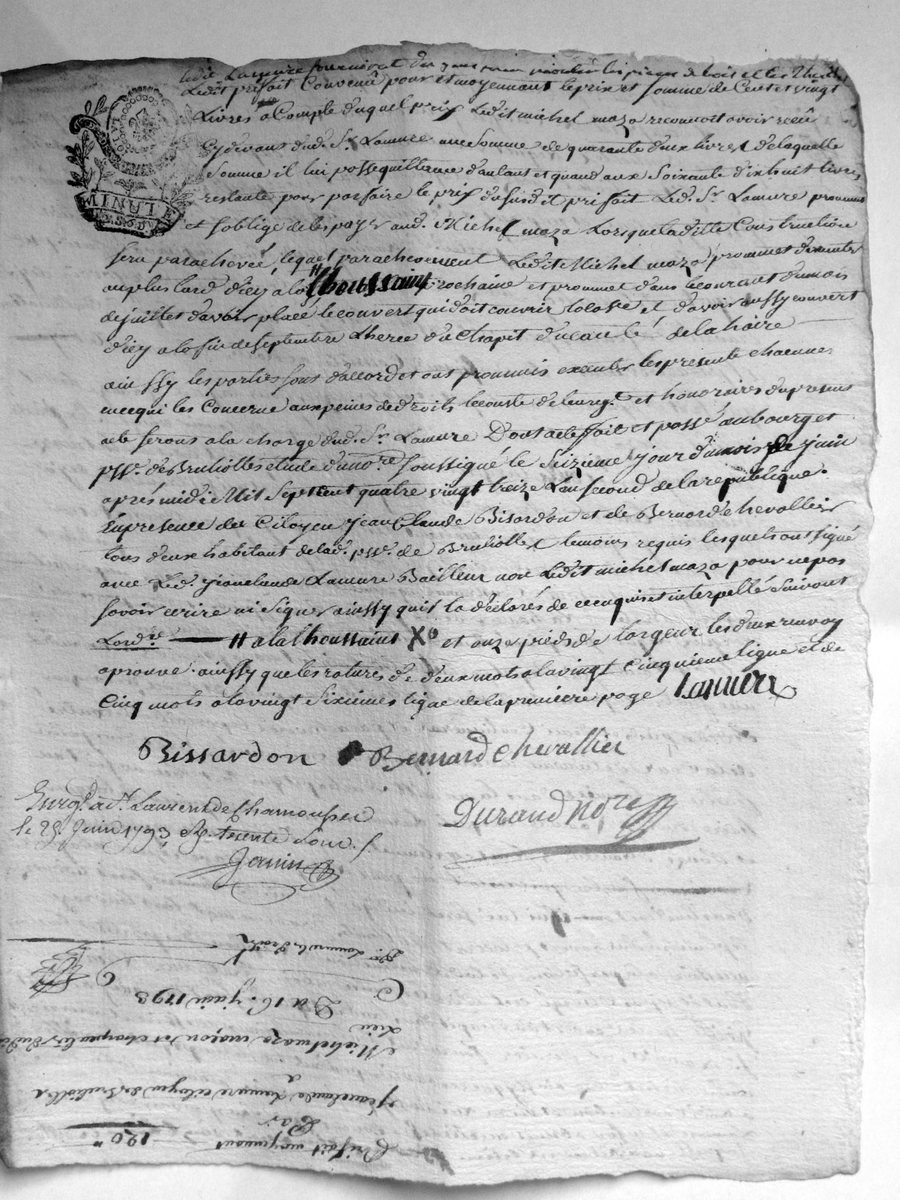 ledit Lamure
Ledit prisfait Convenu pour et moyennant le prix et somme de Cent et vingt
Livres a Compte duquel prix Ledit michel maza reconnoit avoir reçu
Cydevant dud. Sr. Lamure une Somme de quarante deux livres de laquelle
Somme il lui passe quittance d'autant et quand aux Soixante dixhuit livres
restante pour parfaire le prix du susdit prisfait Led. Sr. Lamure promet
et soblige de les payer aud. Michel maza Lorsque laditte Construction
sera parachevée, lequel parachevement Ledit Michel maza promet
au plus tard d'icy a la # thoussaint prochaine et promet dans le courant du mois
de juillet d'avoir placé le couvert qui doit couvrir et d'avoir aussy couvert
d'icy a la fin de septembre
ainssy les parties sont d'accord et ont promis executer les presente chacunes
en ce qui les Concerne aux peines de droits le couste de l'enreg. et honoraires du present
acte serons a la charge dud. Sr. Lamure Dont acte fait et passé au bourg et
pss. de Brulliolles etude du no.re soussigné le Seizieme jour du mois de juin
après midi Mil Septcent quatre vingt treize L'an second de la republique.
En presence des Citoyen jean Claude Bisardon et de Bernard chevallier
tous d'eux habitant de lad. pss. de Brulliolles temoins requis lesquels ont signé
avec Led. jeanclaude Lamure Bailleur non Ledit michel maza pour ne pas
savoir ecrire ni signer ainssy quil la déclarés de ce enquis et interpellé Suivant
Lord.re # a la thoussaint X° et onze pieds de largeur les deux renvoy
aprouvé. ainssy que les ratures de deux mots a la vingt Cinquieme ligne et de
Cinq mots a la vingt Sixieme ligne de la premiere page Lamure
Bissardon Bernard chevallier
Durand No.re
Enrg. à St. Laurent de Chamousset
le 29. juin 1793
Janin
Du 16. juin 1793
Michel maza maçon et charpentier dudit
Lieu
a
jeanclaude Lamure citoyen de Brulliolles
Par
Prisfait moyennant 120#